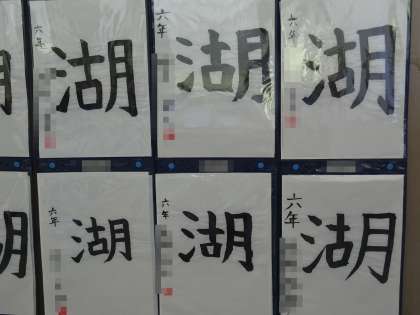 六年
湖
六年
湖
六年
湖
六年
湖
六年
湖
六年
湖